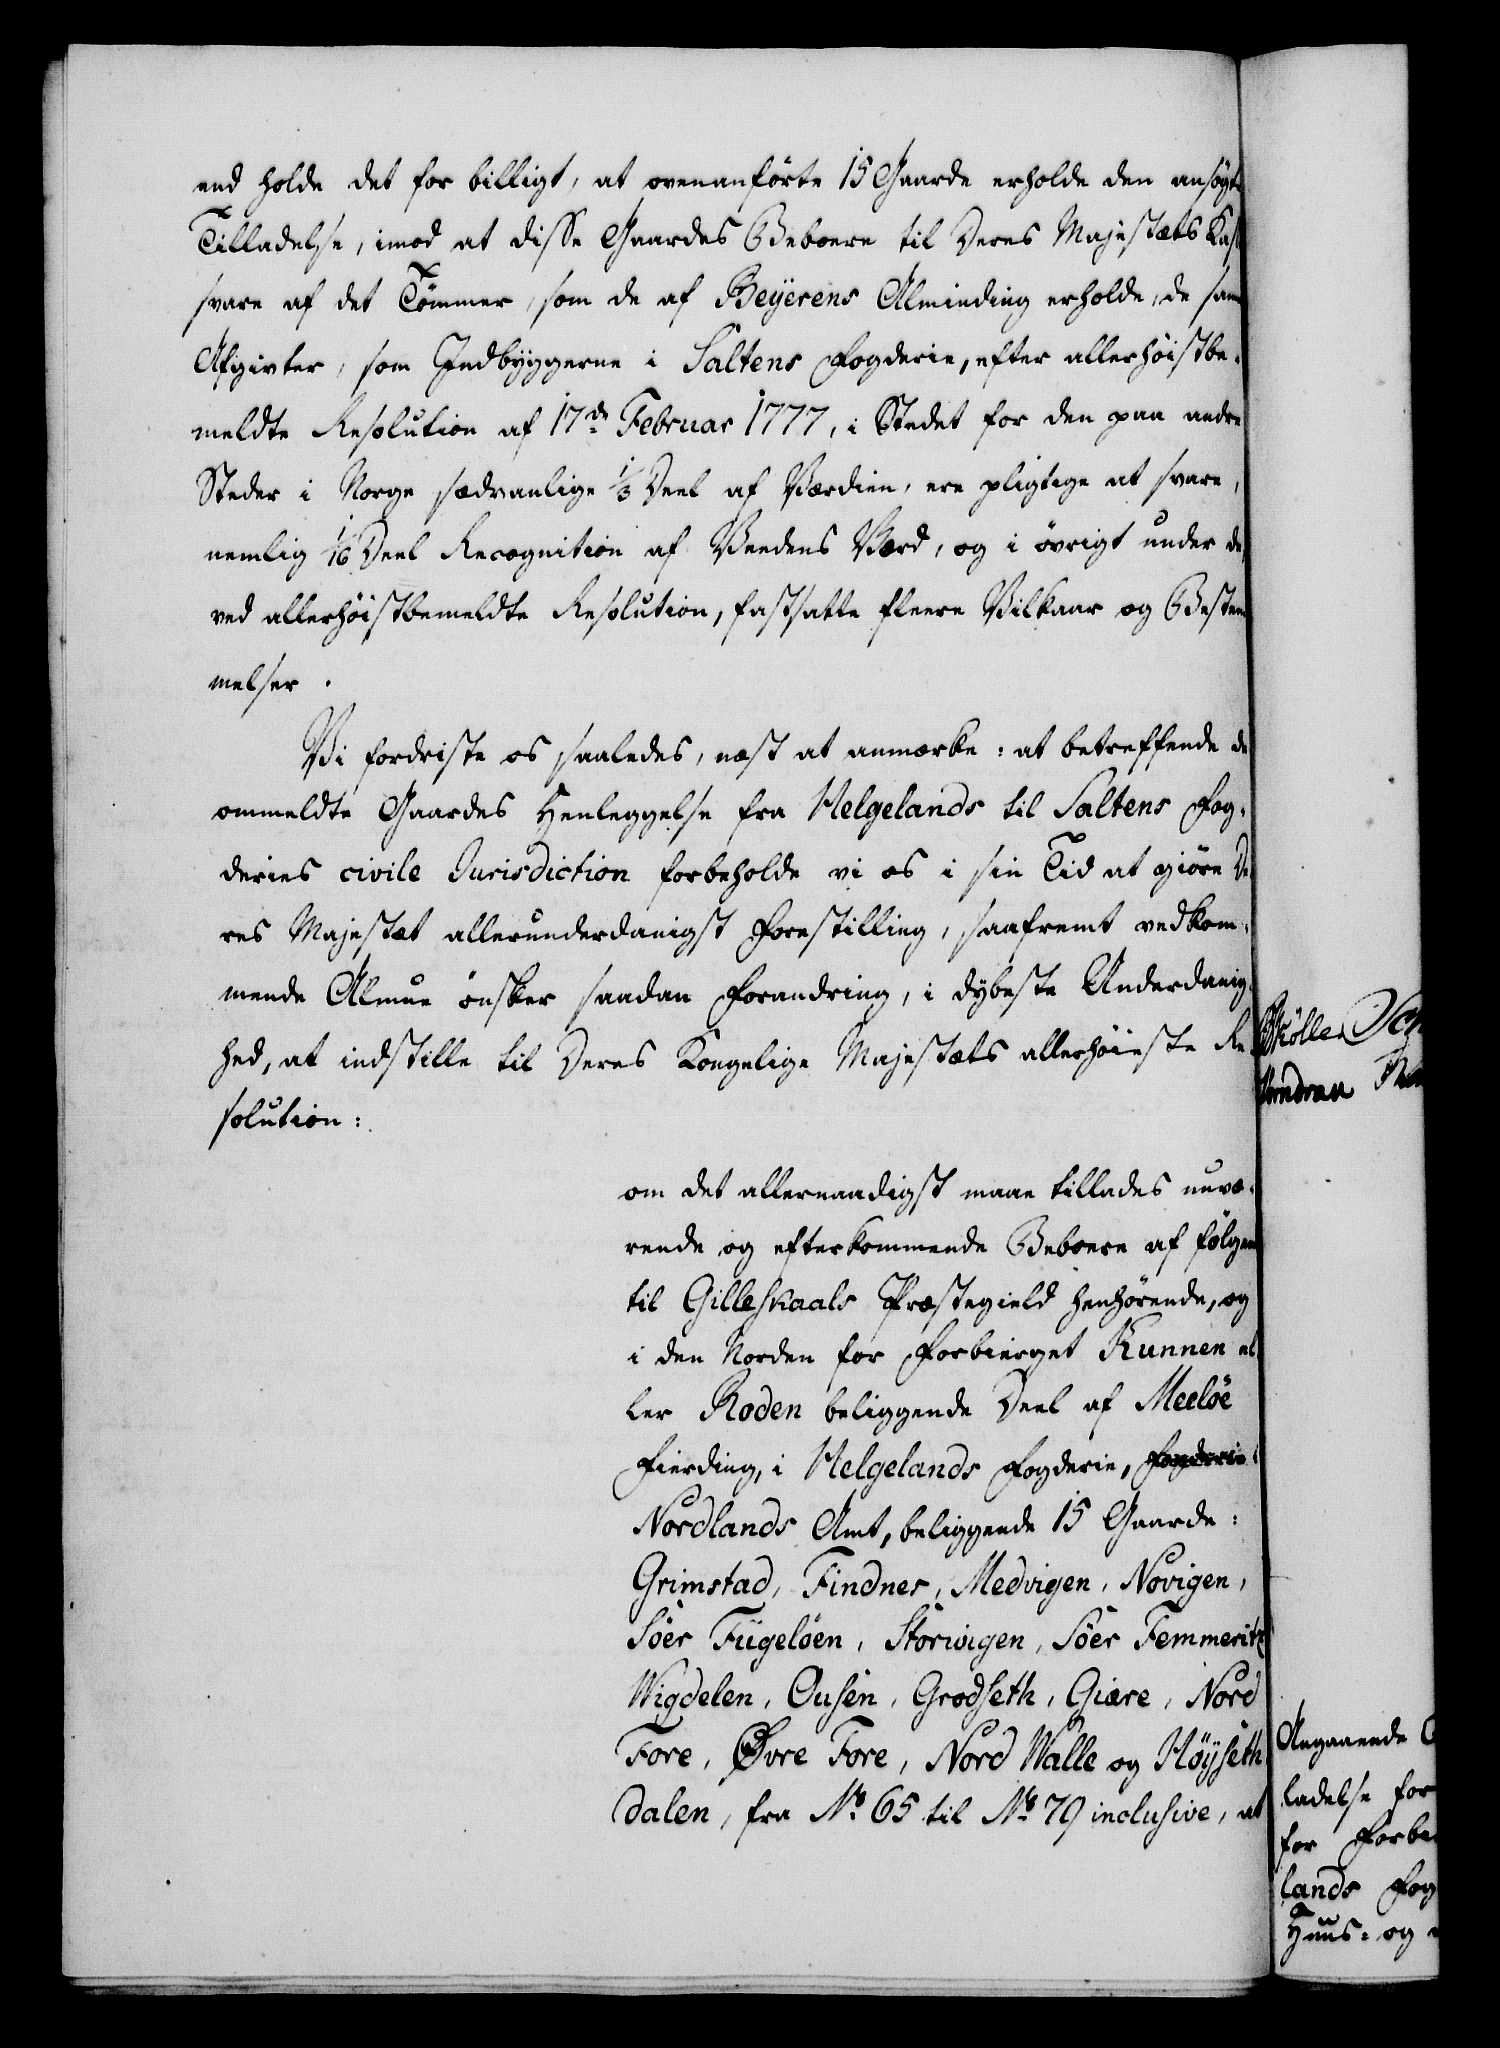 end holde det for billigt, at ovenanförte 15 Gaarde erholde den ansögte
Tilladelse, imod at disse Gaardes Beboere til Deres Majestæts Kasse
svare af det Tömmer, som de af Beÿerens Alminding erholde, de samme
Afgivter, som Indbyggerne i Saltens Fogderie, efter allerhöistbe-
meldte Resolution af 17de Februar 1777, i Stedet for den paa andre
Steder i Norge sædvanlige 1/3 Deel af Værdien, ere pligtige at svare,
nemlig 1/16 Deel Recognition af Veedens Værd, og i övrigt under de,
ved allerhöistbemeldte Resolution, fastsatte fleere Vilkaar og Bestem
melser.
Vi fordriste os saaledes, næst at anmærke: at betreffende de
ommeldte Gaardes Henleggelse fra Helgelands til Saltens Fog-
deries civile Jurisdiction forbeholde vi os i sin Tid at giöre De
res Majestæt allerunderdanigst Forestilling, saafremt vedkom-
mende Almue önsker saadan Forandring, i dybeste Underdanig-
hed, at indstille til Deres Kongelige Majestæts allerhöieste Re
solution:
om det allernaadigst maae tillades nuvæ-
rende og efterkommende Beboere af fölgende
til Gilleskaals Præstegield henhörende, og
i den Norden for Forbierget Kunnen el
ler Roden beliggende Deel af Meelöe
Fierding, i Helgelands Fogderie, Fogderie
Nordlands Amt, beliggende 15 Gaarde:
Grimstad, Findnes, Medvigen, Novigen,
Söer Fugelöen, Storvigen, Söer Femmeritz
Wigdelen, Ousen, Grodseth, Giære, Nord
Fore, Øvre Fore, Nord Walle og Höÿseth
dalen, fra No 65 til No 79 inclusive, at
Möller
Angaaende
ladelse for
for Forbi
lands Fog
Huus- og